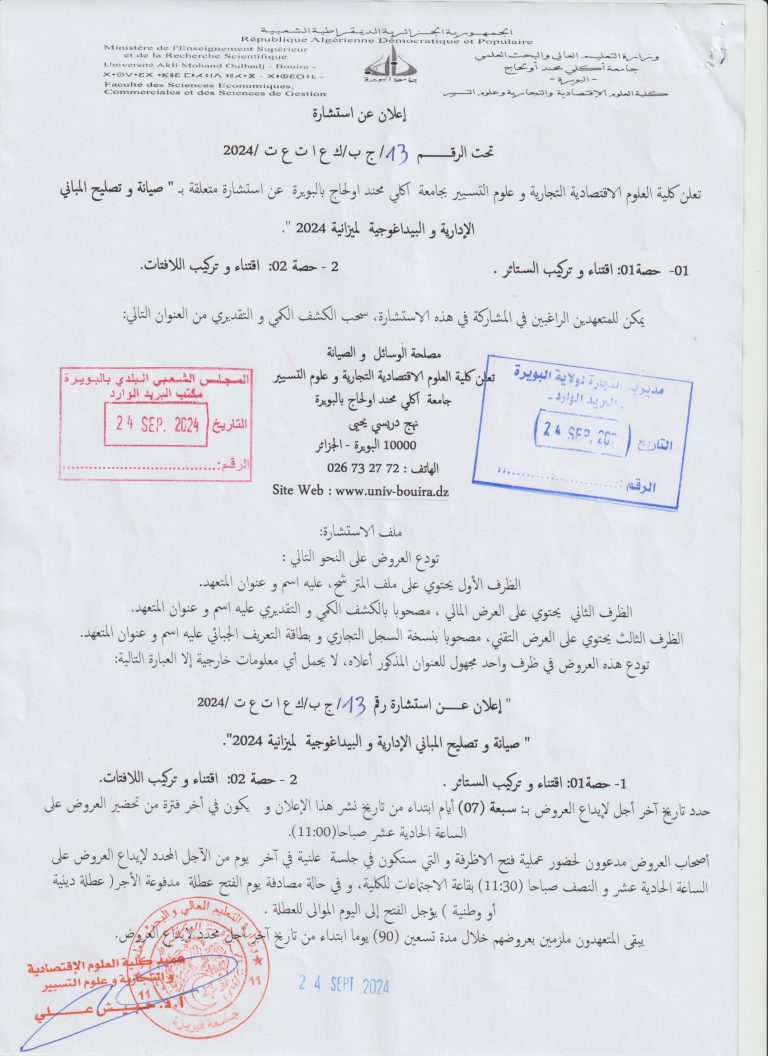 الجمهورية الجزائرية الديمقراطية الشعبية
République Algérienne Démocratique et Populaire
Ministère de l'Enseignement Supérieur
et de la Recherche Scientifique
Université Akli Mohand Oulhadj - Bouira -
Faculté des Sciences Economiques,
Commerciales et des Sciences de Gestion
وزارة التعليم العالي والبحث العلمي
جامعة أكلي محند أولحاج
- البويرة -
كلية العلوم الإقتصادية والتجارية وعلوم التسيير
جامعة البويرة
إعلان عن استشارة
تحت الرقـــــم 13/ ج ب/ك ع ا ت ع ت /2024
تعلن كلية العلوم الاقتصادية التجارية و علوم التسيير بجامعة اكلي محند اولحاج بالبويرة عن استشارة متعلقة بـ " صيانة و تصليح المباني
الإدارية و البيداغوجية لميزانية 2024 ".
01- حصة01: اقتناء و تركيب الستائر . 2 - حصة 02: اقتناء و تركيب اللافتات.
يمكن للمتعهدين الراغبين في المشاركة في هذه الاستشارة، سحب الكشف الكمي و التقديري من العنوان التالي:
مصلحة الوسائل و الصيانة
تعلن كلية العلوم الاقتصادية التجارية و علوم التسيير
جامعة اكلي محند اولحاج بالبويرة
نهج دريسي يحيى
10000 البويرة - الجزائر
الهاتف : 72 27 73 026
Site Web : www.univ-bouira.dz
مديرية التجارة لولاية البويرة
- البريد الوارد -
التاريخ 24 SEP. 202
الرقم :
المجلس الشعبي البلدي بالبويرة
مكتب البريد الوارد
التاريخ 24 SEP. 2024
الرقم:
ملف الاستشارة:
تودع العروض على النحو التالي :
الظرف الأول يحتوي على ملف المترشح، عليه اسم و عنوان المتعهد.
الظرف الثاني يحتوي على العرض المالي ، مصحوبا بالكشف الكمي و التقديري عليه اسم و عنوان المتعهد.
الظرف الثالث يحتوي على العرض التقني، مصحوبا بنسخة السجل التجاري و بطاقة التعريف الجبائي عليه اسم و عنوان المتعهد.
تودع هذه العروض في ظرف واحد مجهول للعنوان المذكور أعلاه، لا يحمل أي معلومات خارجية إلا العبارة التالية:
" إعلان عـــن استشارة رقم 13/ ج ب/ك ع ا ت ع ت /2024
" صيانة و تصليح المباني الإدارية و البيداغوجية لميزانية 2024".
1- حصة01: اقتناء و تركيب الستائر . 2 - حصة 02: اقتناء و تركيب اللافتات.
حدد تاريخ آخر أجل لإيداع العروض بـ: سبعة (07) أيام ابتداء من تاريخ نشر هذا الإعلان و يكون في أخر فترة من تحضير العروض على
الساعة الحادية عشر صباحا(11:00).
أصحاب العروض مدعوون لحضور عملية فتح الاظرفة و التي ستكون في جلسة علنية في آخر يوم من الآجل المحدد لإيداع العروض على
الساعة الحادية عشر و النصف صباحا (11:30) بقاعة الاجتماعات للكلية، و في حالة مصادفة يوم الفتح عطلة مدفوعة الأجر( عطلة دينية
أو وطنية ) يؤجل الفتح إلى اليوم الموالى للعطلة .
يبقى المتعهدون ملزمين بعروضهم خلال مدة تسعين (90) يوما ابتداء من تاريخ آخر أجل محدد لإيداع العروض.
24 SEPT 2024
وزارة التعليم العالي و البحث
11
11
جامعة البويرة
عميد كلية العلوم الإقتصادية
والتجارية وعلوم التسيير